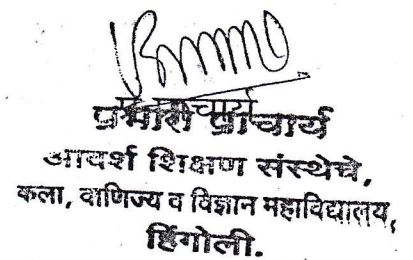 प्राचार्य
प्रभारी प्राचार्य
आदर्श शिक्षण संस्थेचे,
कला, वाणिज्य व विज्ञान महाविद्यालय,
हिंगोली.